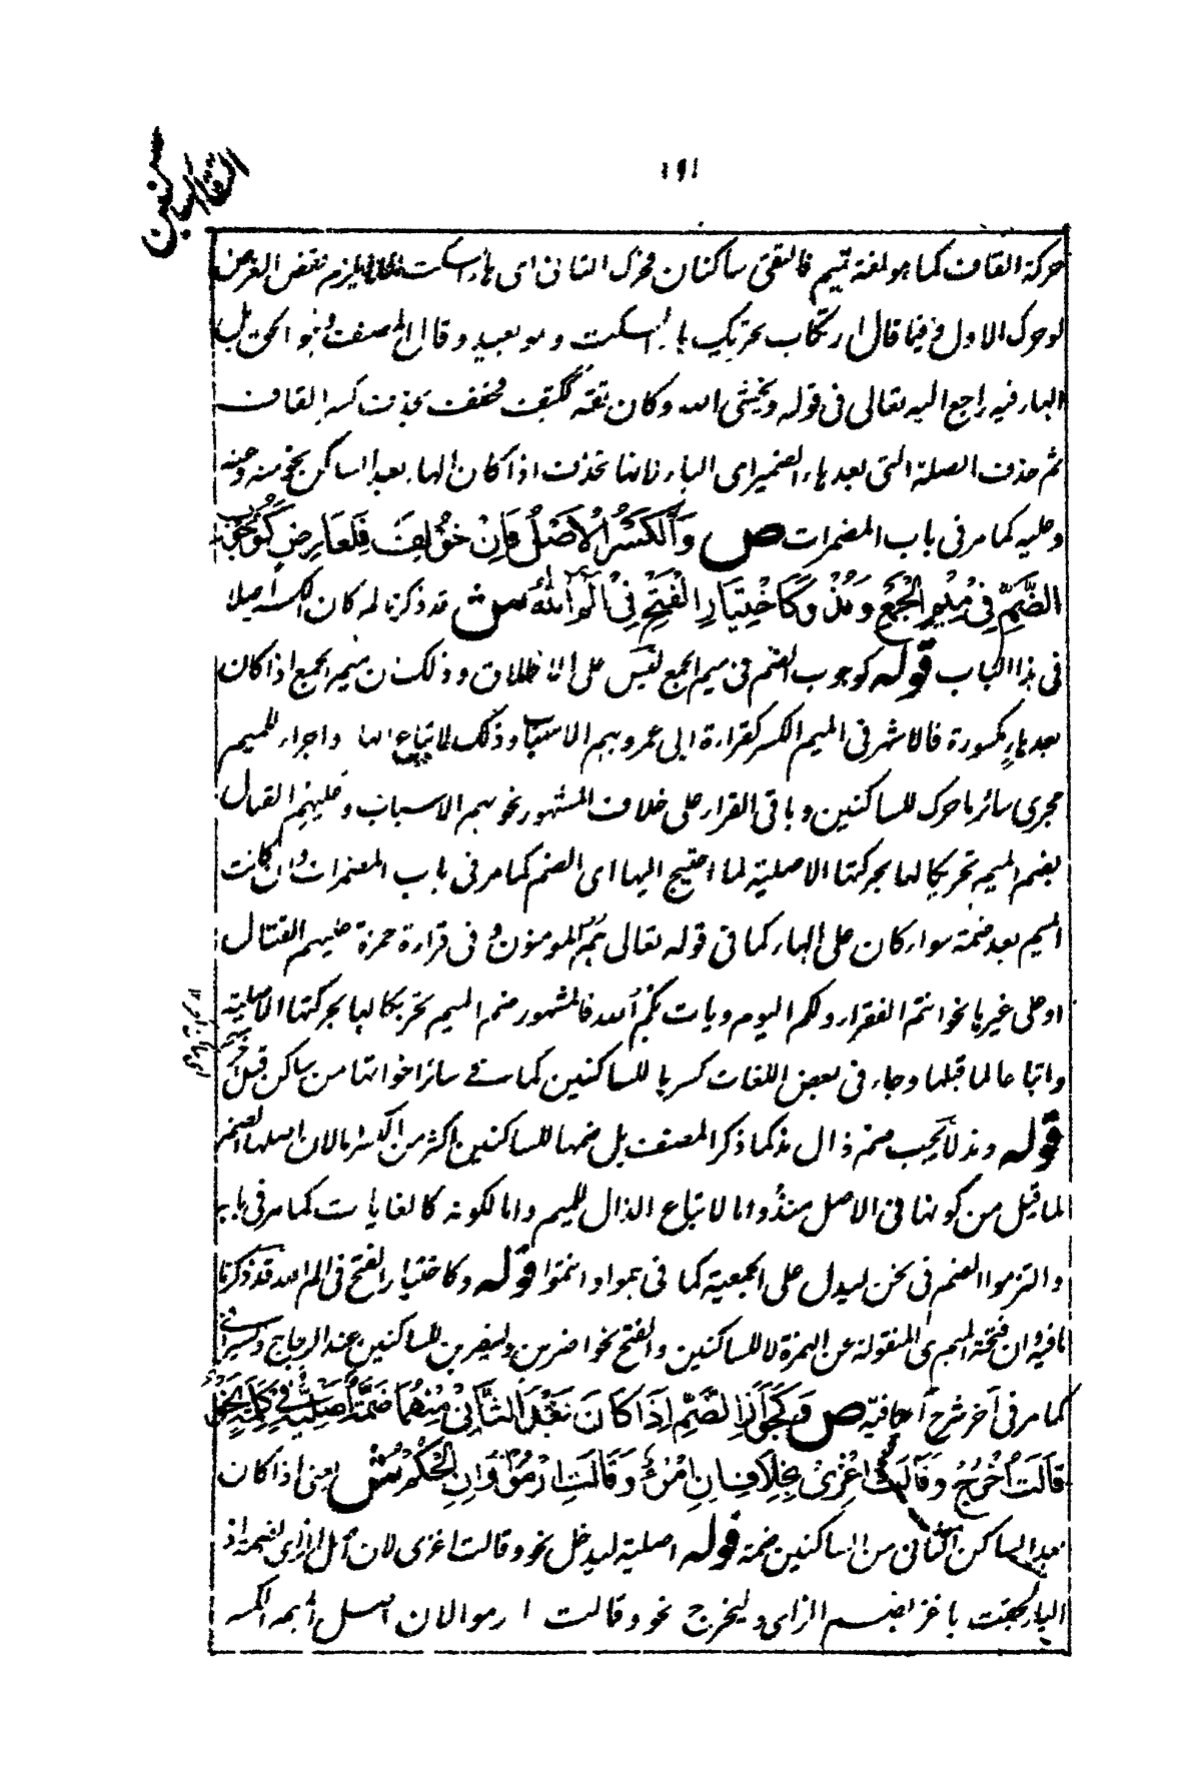 ١٩١
التقاء الساكنين
حركة القاف كما هو لغة تميم فالتقى ساكنان فحرك الثانى اى هاء السكت لئلا يلزم نقض الغرض
لو حرك الاول وفيما قال ارتكاب تحريك هاء السكت وهو بعيد وقال المصنف بل
الهاء فيه راجع اليه تعالى فى قوله ويخشى الله وكان تقه ككتف فخفف بحذف كسر القاف
ثم حذف الصلة التى بعد هاء الضمير اى الياء لانها تحذف اذا كان الهاء بعد الساكن نحو منه وعنه
وعليه كما مر فى باب المضمرات ص وَالْكَسْرُ الْاَصْلُ فَاِنْ خُوْلِفَ فَلِعَارِضٍ كَوُجُوْبِ
الضَّمِّ فِىْ مِيْمِ الْجَمْعِ وَمُذْ وَكَاخْتِيَارِ الْفَتْحِ فِىْ الٓمّٓ اللّٰهُ ش قد ذكرنا لم كان الكسر اصلا
فى هذا الباب قوله كوجوب الضم فى ميم الجمع ليس على الاطلاق وذلك ان ميم الجمع اذا كان
بعد هاء مكسورة فالاشهر فى الميم الكسر كقراءة ابى عمرو بهم الاسباب وذلك لاتباع الهاء واجراء للميم
مجرى سائر ما حرك للساكنين وباقى القراء على خلاف المشهور نحو بهم الاسباب وعليهم القتال
بضم الميم تحريكا لها بحركتها الاصلية لما احتيج اليها اى الضم كما مر فى باب المضمرات وان كانت
الميم بعد ضمة سواء كان على الهاء كما فى قوله تعالى هم المومنون وفى قراءة حمزة عليهم القتال
او على غيرها نحو انتم الفقراء ولكم اليوم ويات بكم الله فالمشهور ضم الميم تحريكا لها بحركتها الاصلية
واتباعا لما قبلها وجاء فى بعض اللغات كسرها للساكنين كما فى سائر اخواتها من ساكن قبل آخر
قوله ومذ لا يجب ضم ذال مذ كما ذكر المصنف بل ضمها للساكنين اكثر من الكسر اما لان اصلها الضم
لما قيل من كونها فى الاصل منذ واما لاتباع الذال للميم واما لكونه كالغايات كما مر فى بابه
والتزموا الضم فى نحن ليدل على الجمعية كما فى همو وانتمو قوله وكاختيار الفتح فى الم الله قد ذكرنا
ما فيه وان فتحة الميم هى المنقولة عن الهمزة لا للساكنين والفتح نحو اضربن وليضربن للساكنين عند الزجاج والسيرافى
كما مر فى آخر شرح الكافية ص وَكَجَوَازِ الضَّمِّ اِذَا كَانَ بَعْدَ الثَّانِىْ مِنْهُمَا ضَمَّةٌ اَصْلِيَّةٌ فِىْ كَلِمَتِهٖ نَحْوُ
قَالَتُ اخْرُجْ وَقَالَتُ اغْزِىْ بِخِلَافِ اِنِ امْرُؤٌ وَقَالَتِ ارْمُوْا وَاِنِ الْحُكْمُ ش يعنى اذا كان
بعد الساكن الثانى من الساكنين ضمة قوله اصلية ليدخل نحو وقالت اغزى لان اصل الزاى الضمة اذ
الياء لحقت باغز بضم الزاى وليخرج نحو وقالت ارموا لان اصل الميم الكسر